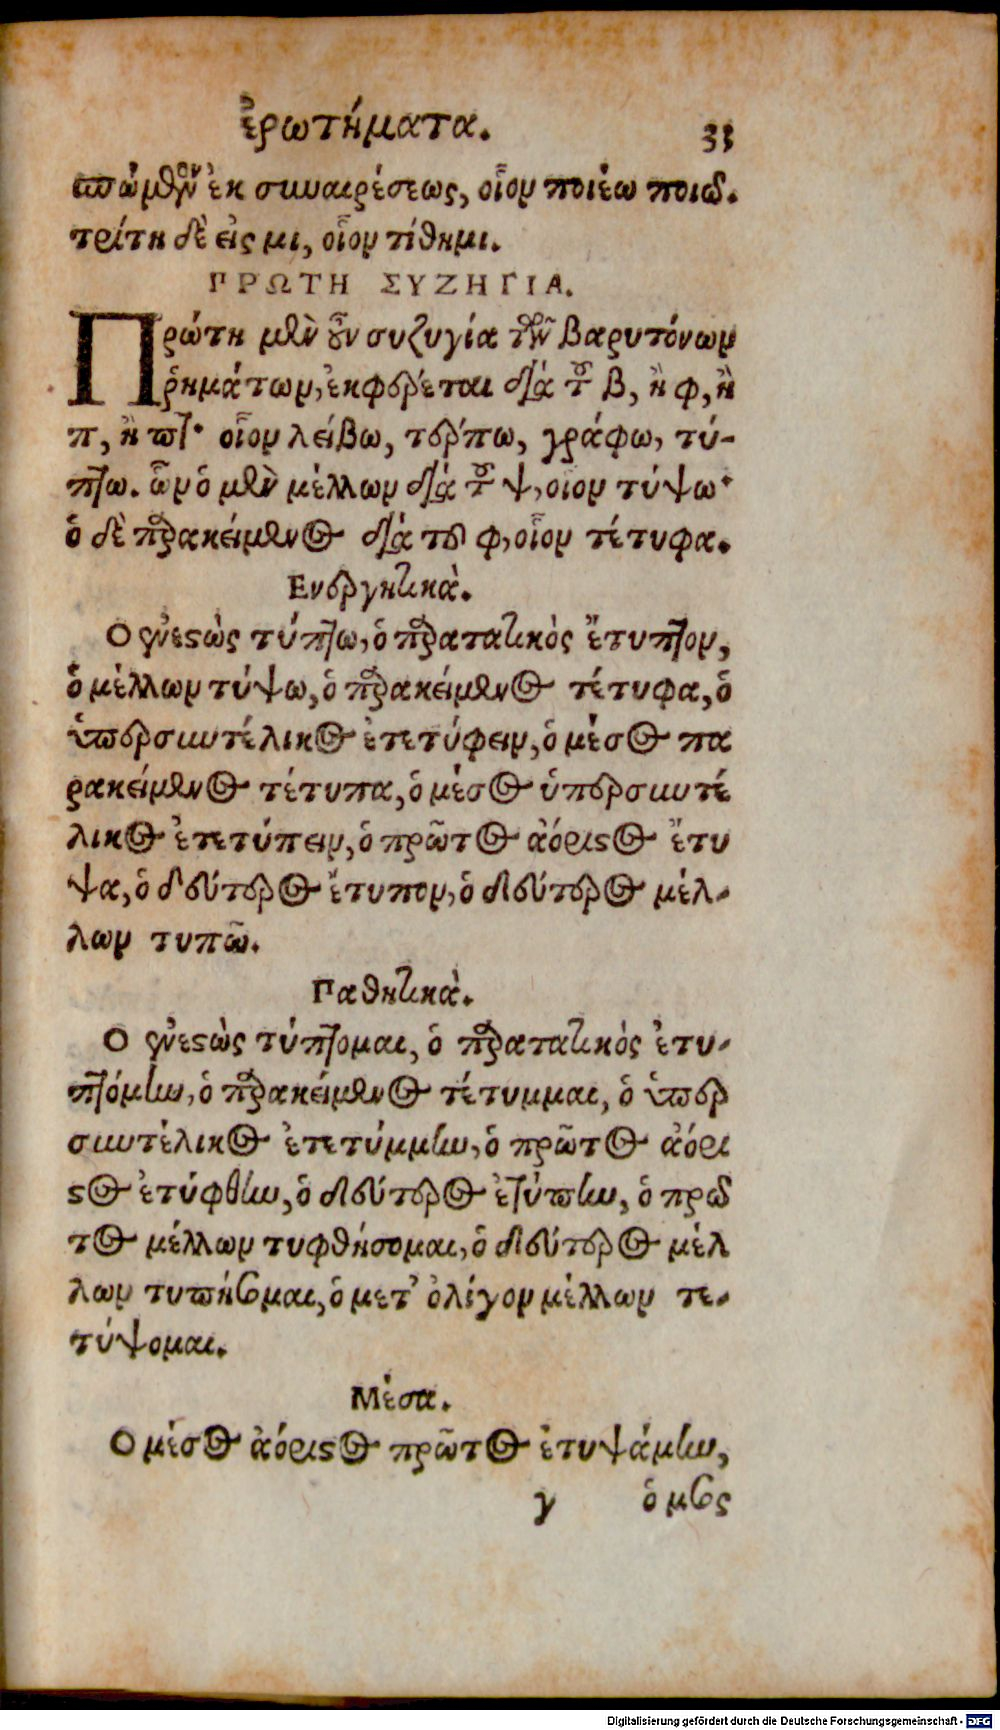 ἐρωτήματα. 33
σπώμενον ἐκ συναιρέσεως, οἷον ποιέω ποιῶ.
τρίτη δὲ εἰς μι, οἷον τίθημι.
ΠΡΩΤΗ ΣΥΖΗΓΙΑ.
Πρώτη μὲν οὖν συζυγία τῶν βαρυτόνων
ῥημάτων, ἐκφέρεται διὰ τοῦ β, ἢ φ, ἢ
π, ἢ πτ· οἷον λείβω, τέρπω, γράφω, τύ-
πτω. ὧν ὁ μὲν μέλλων διὰ τοῦ ψ, οἷον τύψω·
ὁ δὲ παρακείμενος διὰ τοῦ φ, οἷον τέτυφα.
Ενεργητικὰ.
Ο ἐνεστὼς τύπτω, ὁ παρατατικὸς ἔτυπτον,
ὁ μέλλων τύψω, ὁ παρακείμενος τέτυφα, ὁ
ὑπερσυντέλικος ἐτετύφειν, ὁ μέσος πα
ρακείμενος τέτυπα, ὁ μέσος ὑπερσυντέ
λικος ἐτετύπειν, ὁ πρῶτος ἀόριστος ἔτυ
ψα, ὁ δεύτερος ἔτυπον, ὁ δεύτερος μέλ-
λων τυπῶ.
Παθητικὰ.
Ο ἐνεστὼς τύπτομαι, ὁ παρατατικὸς ἐτυ-
πτόμην, ὁ παρακείμενος τέτυμμαι, ὁ ὑπερ
συντέλικος ἐτετύμμην, ὁ πρῶτος ἀόρι
στος ἐτύφθην, ὁ δεύτερος ἐτύπην, ὁ πρῶ
τος μέλλων τυφθήσομαι, ὁ δεύτερος μέλ
λων τυπήσομαι, ὁ μετ' ὀλίγον μέλλων τε-
τύψομαι.
Μέσα.
Ο μέσος ἀόριστος πρῶτος ἐτυψάμην,
γ ὁ μέσος
Digitalisierung gefördert durch die Deutsche Forschungsgemeinschaft - DFG